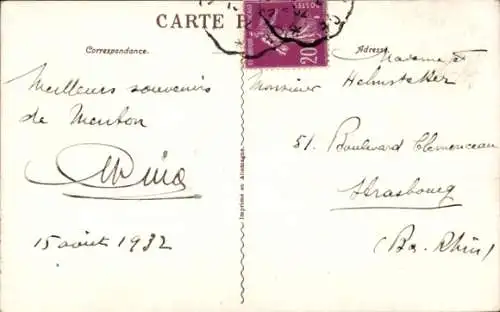 CARTE P
Correspondance.
Adresse.
POSTES
20
Meilleurs souvenirs
de Menton
15 août 1932
Imprimé en Allemagne.
Madame et
Monsieur Helmstetter
51. Boulevard Clemenceau
Strasbourg
(Bas. Rhin)